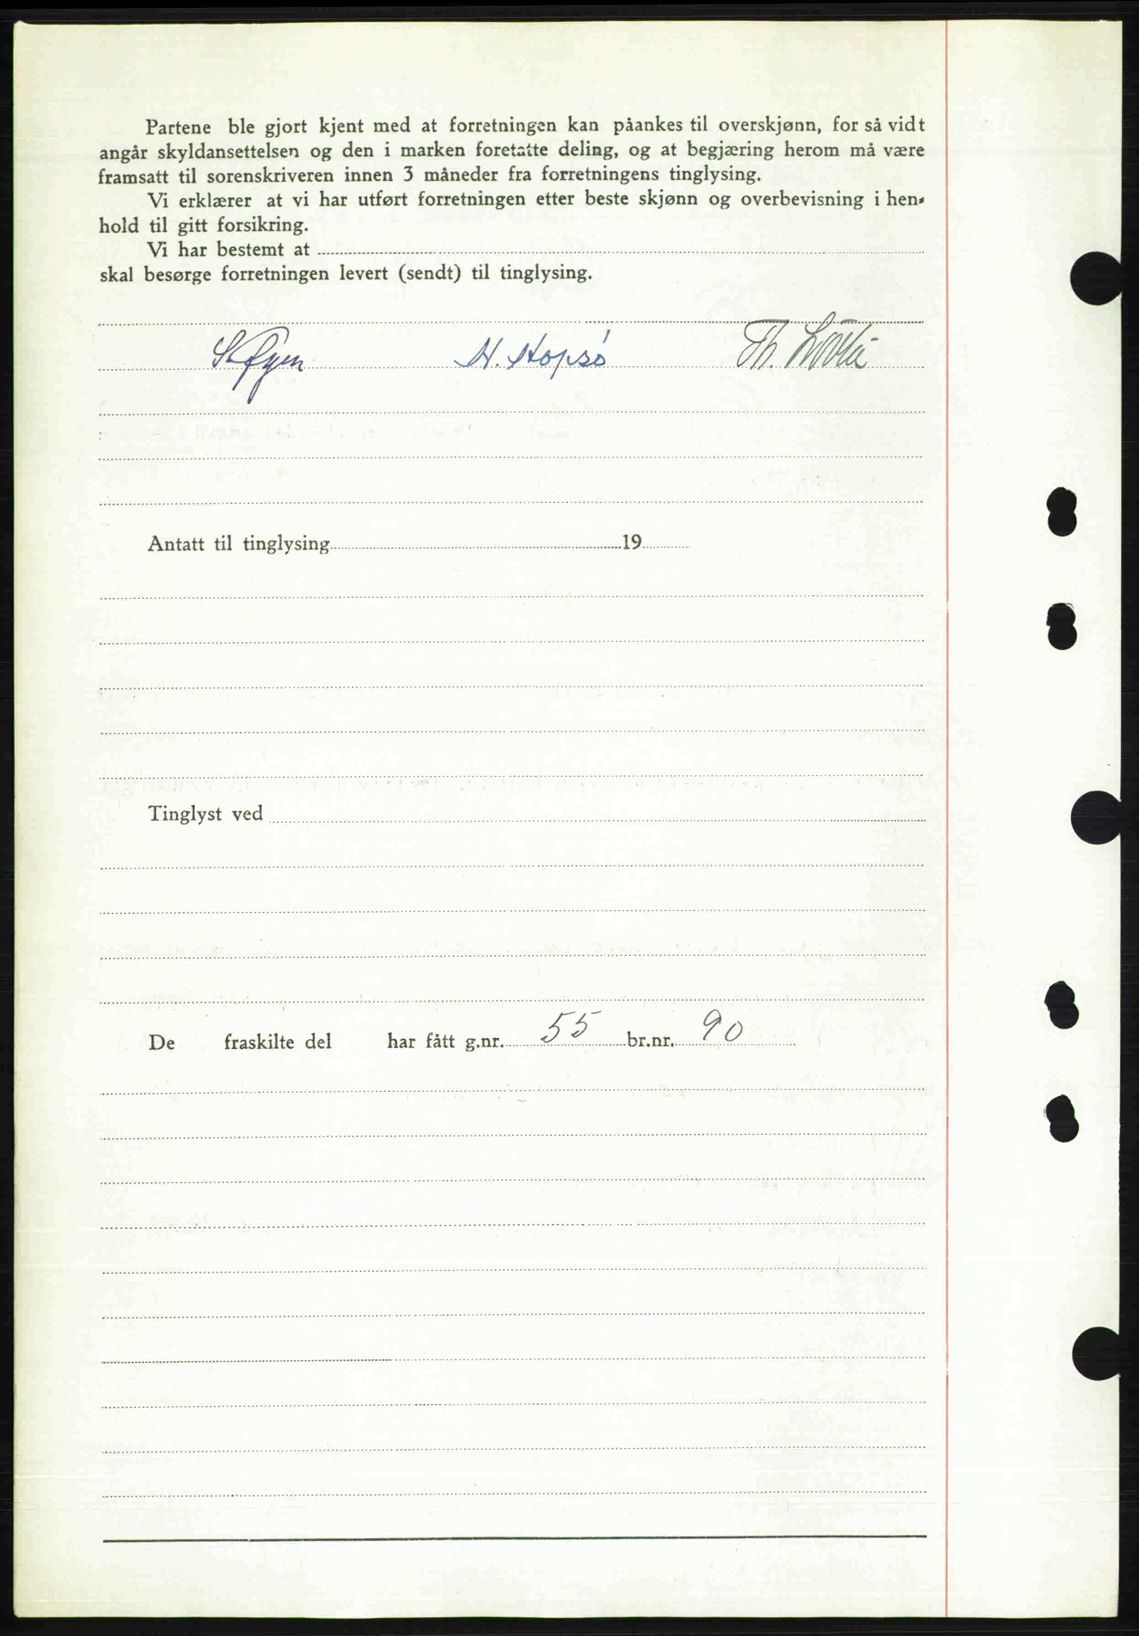 Partene ble gjort kjent med at forretningen kan påankes til overskjønn, for så vidt
angår skyldansettelsen og den i marken foretatte deling, og at begjæring herom må være
framsatt til sorenskriveren innen 3 måneder fra forretningens tinglysing.
Vi erklærer at vi har utført forretningen etter beste skjønn og overbevisning i hen-
hold til gitt forsikring.
Vi har bestemt at
skal besørge forretningen levert (sendt) til tinglysing.
S. Øyen H. Hopsø Th.
Antatt til tinglysing 19
Tinglyst ved
De fraskilte del har fått g.nr. 55 br.nr. 90